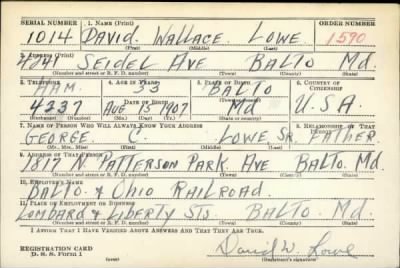 SERIAL NUMBER 1. NAME (Print) ORDER NUMBER
1014 DAVID. WALLACE. LOWE. 1590
(First) (Middle) (Last)
2. ADDRESS (Print)
4241 SEIDEL AVE BALTO Md.
(Number and street or R. F. D. number) (Town) (County) (State)
3. TELEPHONE 4. AGE IN YEARS 5. PLACE OF BIRTH 6. COUNTRY OF CITIZENSHIP
HAM. 33 BALTO
(Exchange) DATE OF BIRTH (Town or county)
4237 AUG 15 1907 Md U.S.A.
(Number) (Mo.) (Day) (Yr.) (State or country)
7. NAME OF PERSON WHO WILL ALWAYS KNOW YOUR ADDRESS 8. RELATIONSHIP OF THAT PERSON
GEORGE C. LOWE, SR. FATHER
(Mr., Mrs., Miss) (First) (Middle) (Last)
9. ADDRESS OF THAT PERSON
1817 N. PATTERSON PARK. AVE BALTO. Md.
(Number and street or R. F. D. number) (Town) (County) (State)
10. EMPLOYER'S NAME
BALTO. & OHIO RAILROAD.
11. PLACE OF EMPLOYMENT OR BUSINESS
LOMBARD & LIBERTY STS. BALTO. Md.
(Number and street or R. F. D. number) (Town) (County) (State)
I AFFIRM THAT I HAVE VERIFIED ABOVE ANSWERS AND THAT THEY ARE TRUE.
REGISTRATION CARD
D. S. S. Form 1 (over) David W. Lowe
(Registrant's signature)